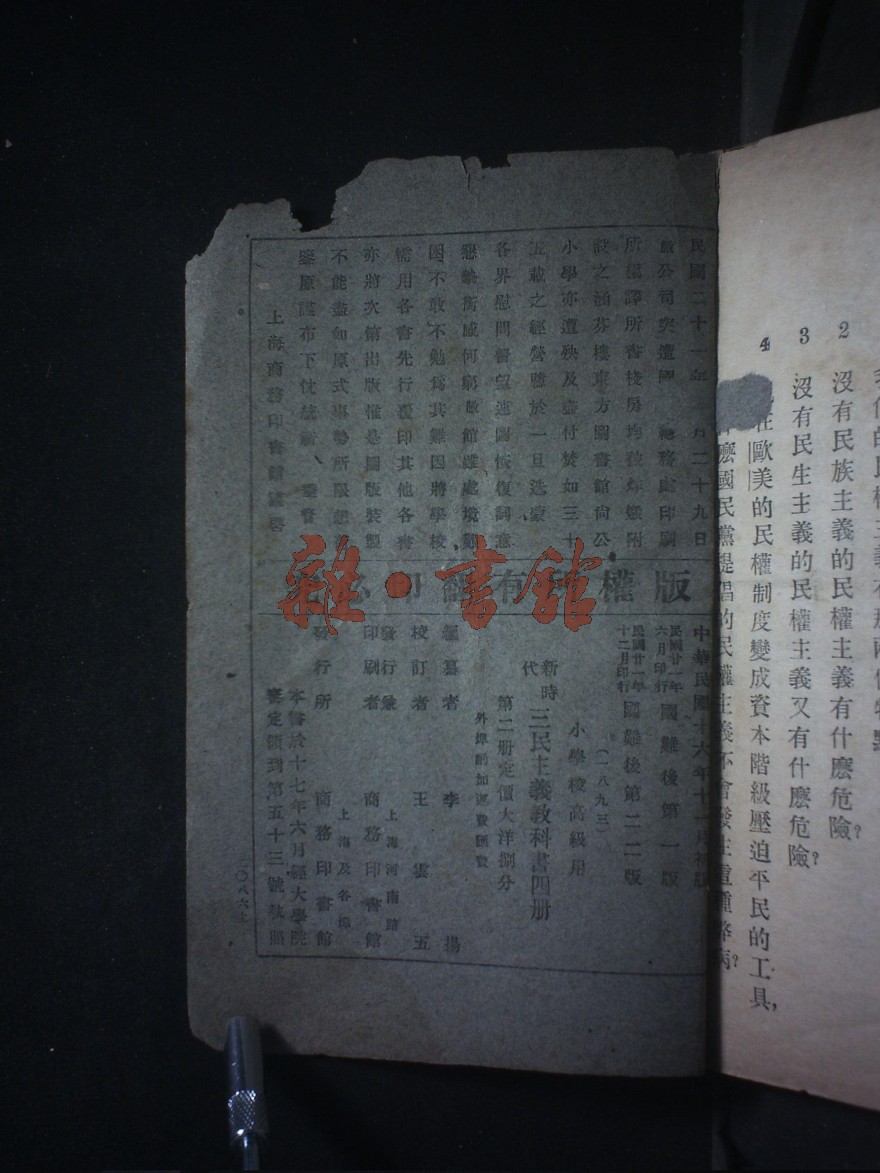 我們的民權主義有那兩個特點
2 沒有民族主義的民權主義有什麽危險?
3 沒有民生主義的民權主義又有什麽危險?
4 在歐美的民權制度變成資本階級壓迫平民的工具,
什麽國民黨提倡的民權主義不會發生這種弊病?
民國二十一年 月二十九日
敝公司突遭國 總務處印刷
所編譯所書棧房均被炸燬附
設之涵芬樓東方圖書館尚公
小學亦遭殃及盡付焚如三十
五載之經營隳於一旦迭蒙
各界慰問督望速圖恢復詞意
懇摯銜感何窮敝館雖處境艱
困不敢不勉爲其難因將學校
需用各書先行覆印其他各書
亦將次第出版惟是圖版裝製
不能盡如原式事勢所限想
鑒原謹布下忱統祈 垂詧
上海商務印書館謹啓
版權 有翻印必
中華民國十六年十一月初版
民國廿一年六月印行 國難後第一版
民國廿一年十二月印行 國難後第二二版
(一八九三)
小學校高級用
新時代 三民主義教科書四册
第二册定價大洋捌分
外埠酌加運費匯費
編纂者 李揚
校訂者 王雲五
發行兼印刷者 上海河南路 商務印書館
發行所 上海及各埠 商務印書館
本書於十七年六月經大學院
審定領到第五十三號執照
二〇八六上
雜·書館